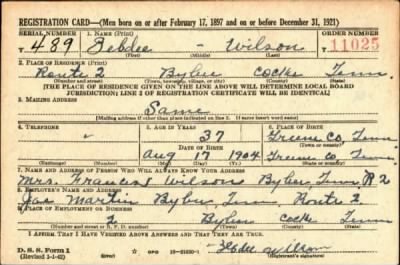 REGISTRATION CARD—(Men born on or after February 17, 1897 and on or before December 31, 1921)
SERIAL NUMBER 1. NAME (Print) ORDER NUMBER
T 489 Zebdee - Wilson 11025
(First) (Middle) (Last)
2. PLACE OF RESIDENCE (Print)
Route 2 Bybee Cocke Tenn.
(Number and street) (Town, township, village, or city) (County) (State)
[THE PLACE OF RESIDENCE GIVEN ON THE LINE ABOVE WILL DETERMINE LOCAL BOARD
JURISDICTION; LINE 2 OF REGISTRATION CERTIFICATE WILL BE IDENTICAL]
3. MAILING ADDRESS
Same
[Mailing address if other than place indicated on line 2. If same insert word same]
4. TELEPHONE 5. AGE IN YEARS 6. PLACE OF BIRTH
37 Greene Co. Tenn
DATE OF BIRTH (Town or county)
Aug 17 1904 Greene Co, Tenn.
(Exchange) (Number) (Mo.) (Day) (Yr.) (State or country)
7. NAME AND ADDRESS OF PERSON WHO WILL ALWAYS KNOW YOUR ADDRESS
Mrs. Frances Wilson Bybee Tenn R 2
8. EMPLOYER'S NAME AND ADDRESS
Jas Martin Bybee, Tenn. Route 2
9. PLACE OF EMPLOYMENT OR BUSINESS
2 Bybee Cocke Tenn
(Number and street or R. F. D. number) (Town) (County) (State)
I AFFIRM THAT I HAVE VERIFIED ABOVE ANSWERS AND THAT THEY ARE TRUE.
D. S. S. Form 1
(Revised 1-1-42) GPO Wilson
(Registrant's signature)